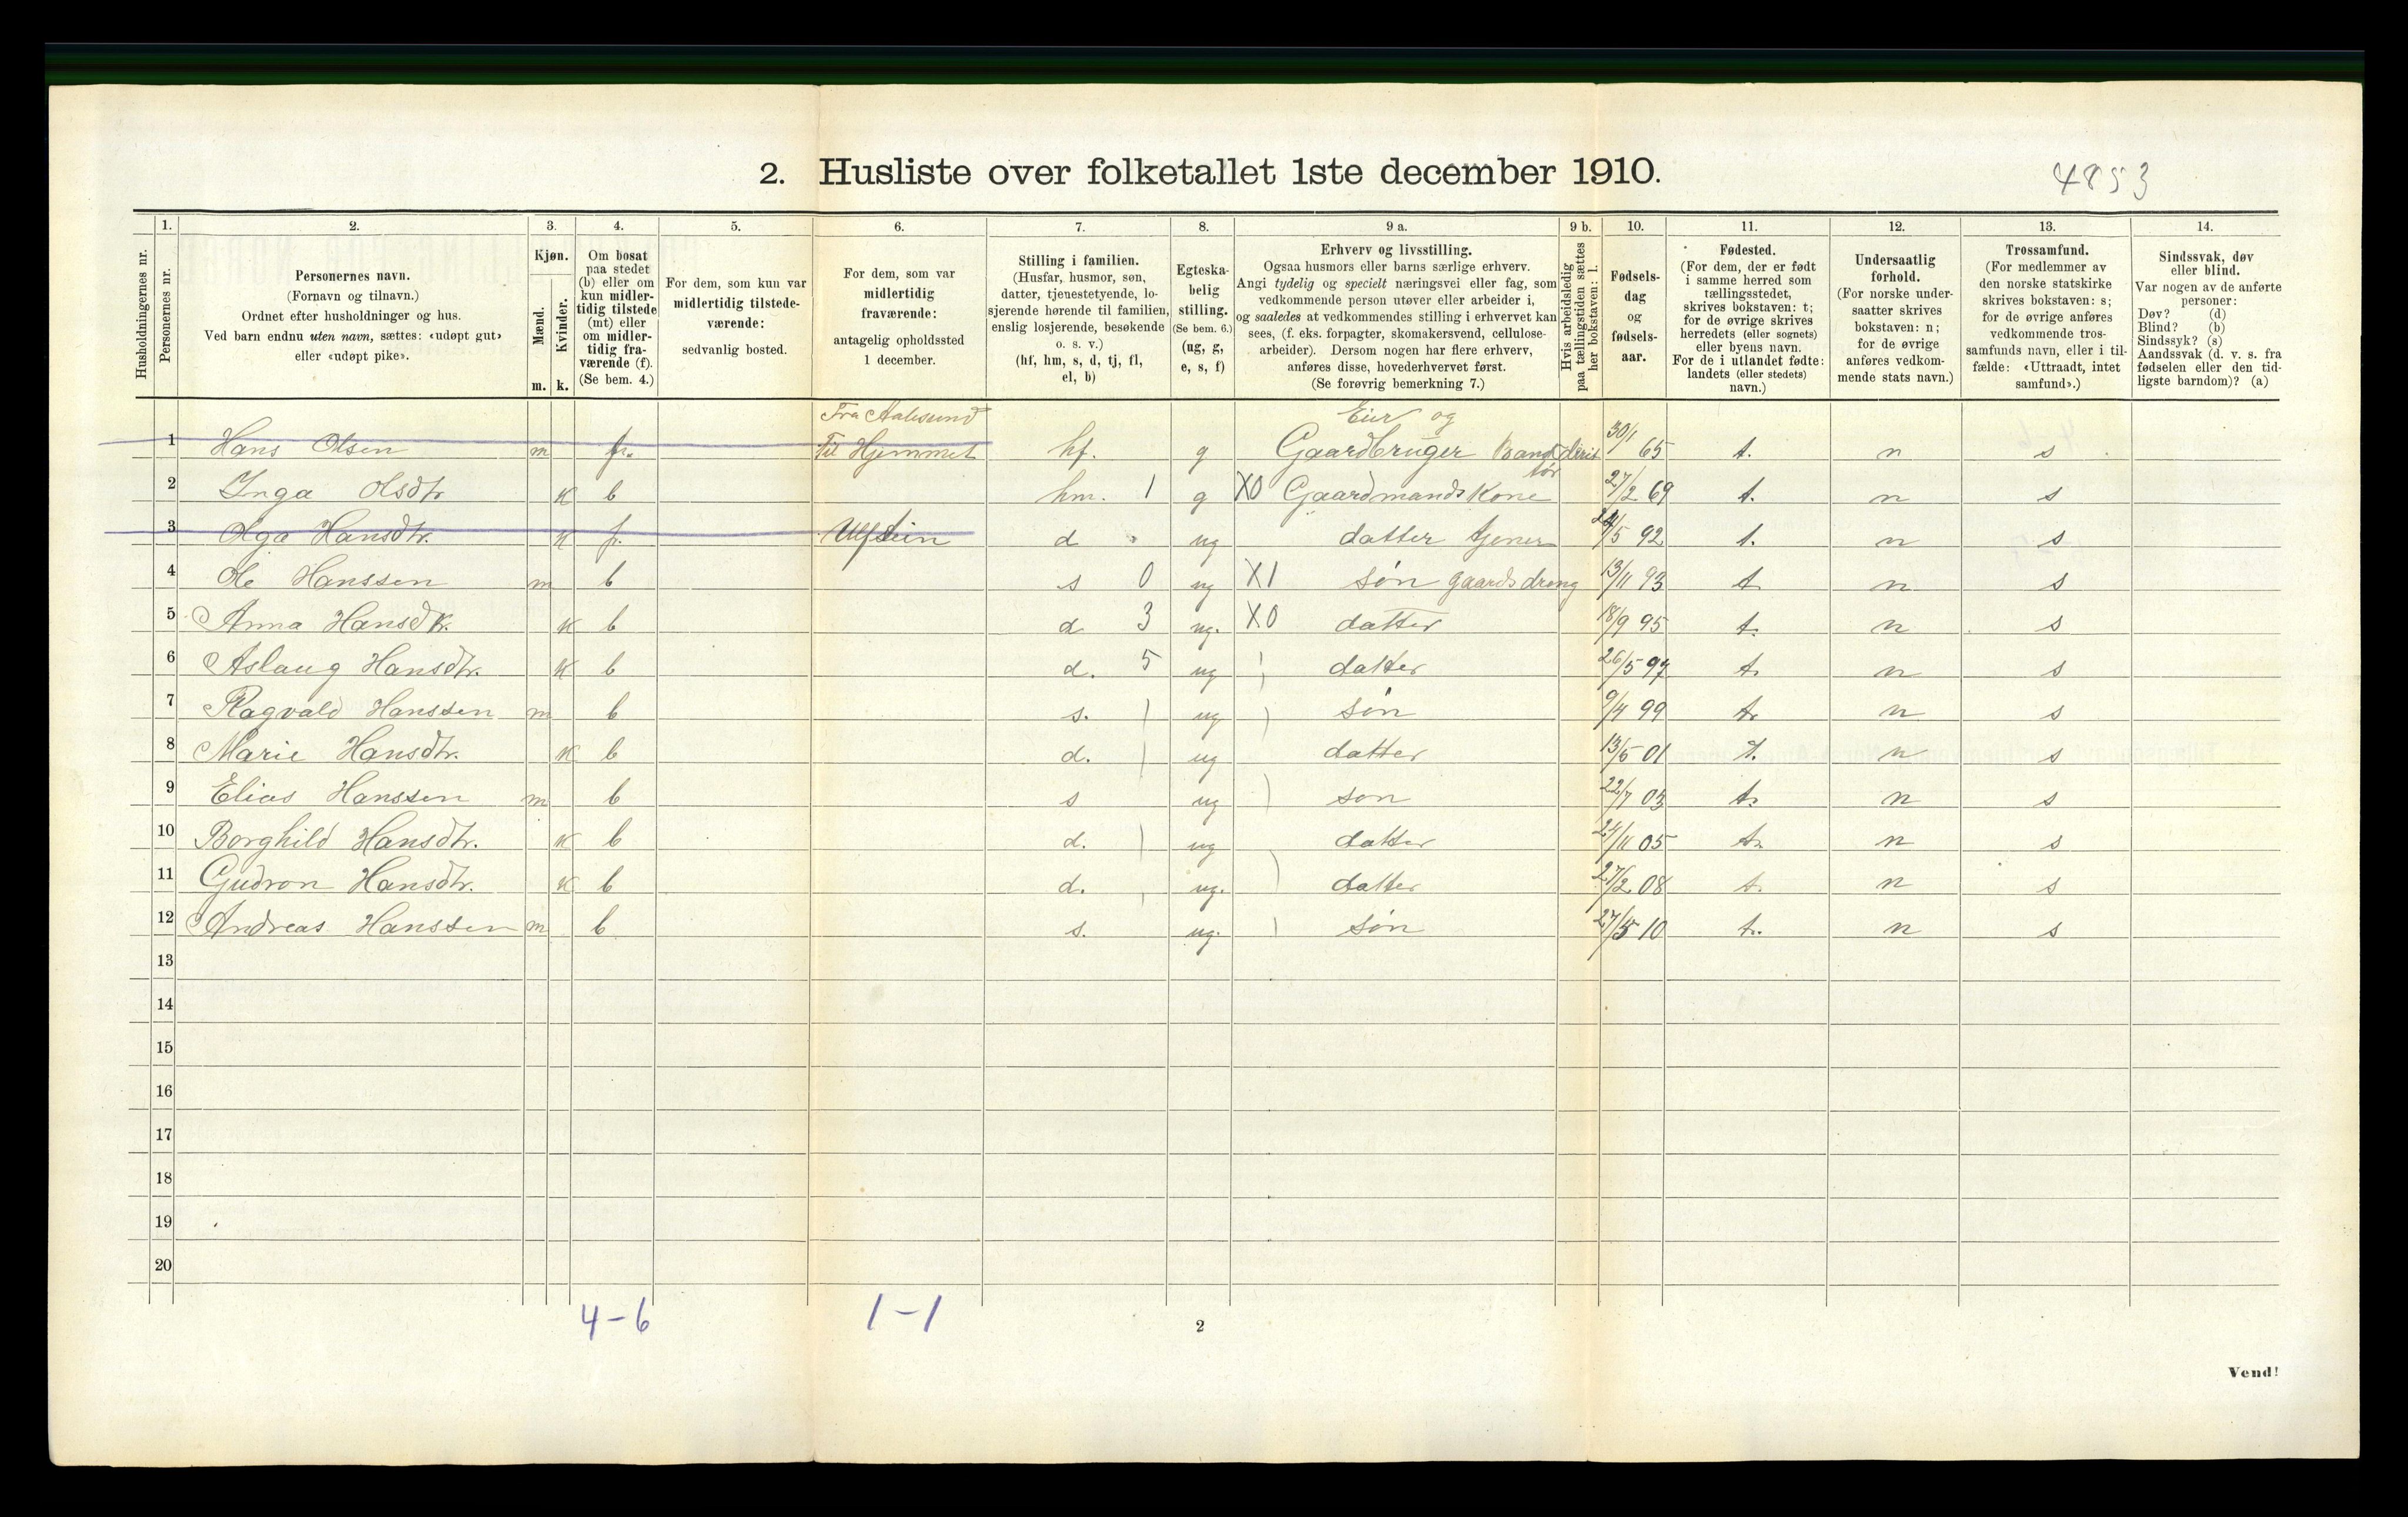 2. Husliste over folketallet 1ste december 1910.
4853
Husholdningernes nr.
1.
Personernes nr.
2.
Personernes navn.
(Fornavn og tilnavn.)
Ordnet efter husholdninger og hus.
Ved barn endnu uten navn, sættes: «udøpt gut»
eller «udøpt pike».
3.
Kjøn.
Mænd.
Kvinder.
m. k.
4.
Om bosat
paa stedet
(b) eller om
kun midler-
tidig tilstede
(mt) eller
om midler-
tidig fra-
værende (f).
(Se bem. 4.)
5.
For dem, som kun var
midlertidig tilstede-
værende:
sedvanlig bosted.
6.
For dem, som var
midlertidig
fraværende:
antagelig opholdssted
1 december.
7.
Stilling i familien.
(Husfar, husmor, søn,
datter, tjenestetyende, lo-
sjerende hørende til familien,
enslig losjerende, besøkende
o. s. v.)
(hf, hm, s, d, tj, fl,
el, b)
8.
Egteska-
belig
stilling.
(Se bem. 6.)
(ug, g,
e, s, f)
9 a.
Erhverv og livsstilling.
Ogsaa husmors eller barns særlige erhverv.
Angi tydelig og specielt næringsvei eller fag, som
vedkommende person utøver eller arbeider i,
og saaledes at vedkommendes stilling i erhvervet kan
sees, (f. eks. forpagter, skomakersvend, cellulose-
arbeider). Dersom nogen har flere erhverv,
anføres disse, hovederhvervet først.
(Se forøvrig bemerkning 7.)
9 b.
Hvis arbeidsledig
paa tællingstiden sættes
her bokstaven: l.
10.
Fødsels-
dag
og
fødsels-
aar.
11.
Fødested.
(For dem, der er født
i samme herred som
tællingsstedet,
skrives bokstaven: t;
for de øvrige skrives
herredets (eller sognets)
eller byens navn.
For de i utlandet fødte:
landets (eller stedets)
navn.)
12.
Undersaatlig
forhold.
(For norske under-
saatter skrives
bokstaven: n;
for de øvrige
anføres vedkom-
mende stats navn.)
13.
Trossamfund.
(For medlemmer av
den norske statskirke
skrives bokstaven: s;
for de øvrige anføres
vedkommende tros-
samfunds navn, eller i til-
fælde: «Uttraadt, intet
samfund».)
14.
Sindssvak, døv
eller blind.
Var nogen av de anførte
personer:
Døv? (d)
Blind? (b)
Sindssyk? (s)
Aandssvak (d. v. s. fra
fødselen eller den tid-
ligste barndom)? (a)
Fra Aalesund Eier og
1 Hans Olsen m fr. Til Hjemmet hf. g Gaardbruger 30/1 65 t. n s
2 Inga Olsdtr k b hm. 1 g X0 Gaardmands Kone 27/2 69 t. n s
3 Olga Hansdtr. k f. Ulfstein d ug datter tjener 24/5 92 t. n s
4 Ole Hanssen m b s 0 ug X1 søn gaardsdreng 13/11 93 t n s
5 Anna Hansdtr. k b d 3 ug. X0 datter 18/9 95 t. n s
6 Aslaug Hansdtr. k b d. 5 ug datter 26/5 97 t. n s
7 Ragvald Hanssen m b s. ug søn 9/4 99 t. n s
8 Marie Hansdtr. k b d. ug datter 13/5 01 t. n s
9 Elias Hanssen m b s ug son 22/7 03 t. n s
10 Borghild Hansdtr. k b d. ug datter 24/11 05 t. n s
11 Gudron Hansdtr. k b d. ug. datter 27/2 08 t. n s
12 Andreas Hanssen m b s. ug. søn 27/5 10 t. n s
13
14
15
16
17
18
19
20
4-6 1-1
2
Vend!